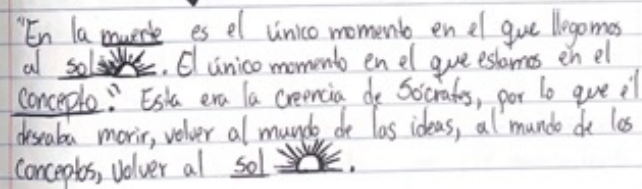 "En la muerte es el único momento en el que llegamos
al sol. El único momento en el que estamos en el
concepto". Esta era la creencia de Sócrates, por lo que él
deseaba morir, volver al mundo de las ideas, al mundo de los
conceptos, volver al sol.